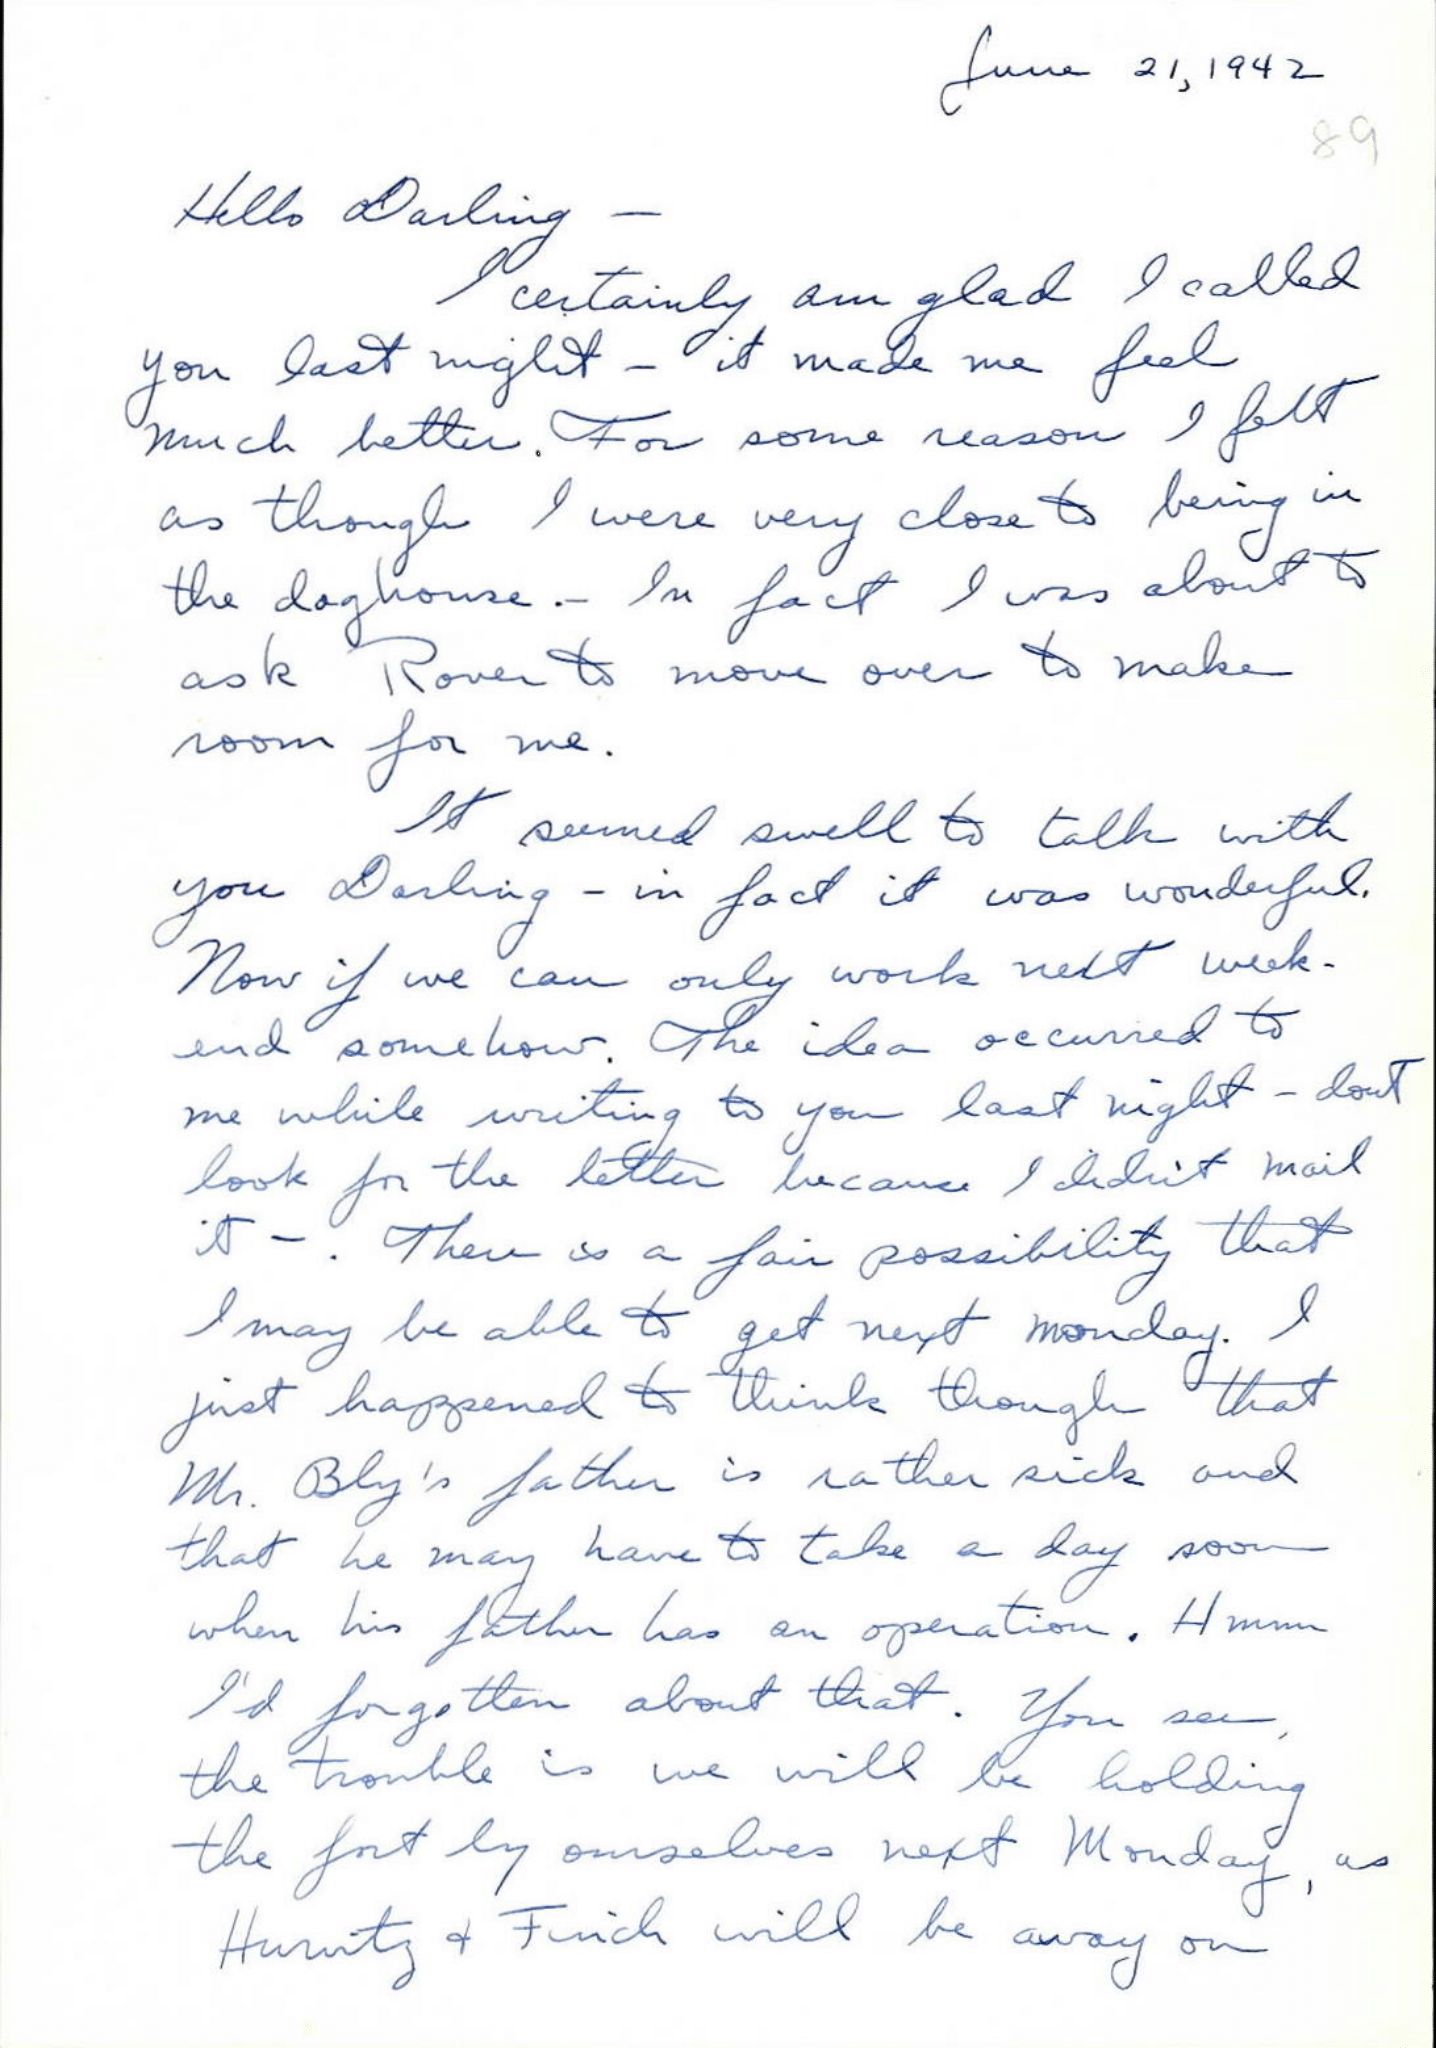 June 21, 1942
89
Hello Darling —
I certainly am glad I called
you last night - it made me feel
much better. For some reason I felt
as though I were very close to being in
the doghouse. - In fact I was about to
ask Rover to move over to make
room for me.
It seemed swell to talk with
you Darling - in fact it was wonderful.
Now if we can only work next week-
end somehow. The idea occurred to
me while writing to you last night - dont
look for the letter because I didn't mail
it - . There is a fair possibility that
I may be able to get next monday. I
just happened to think though that
Mr. Bly's father is rather sick and
that he may have to take a day soon
when his father has an operation. Hmmm
I'd forgotten about that. You see,
the trouble is we will be holding
the fort by ourselves next Monday, as
Hurwitz & Finch will be away on